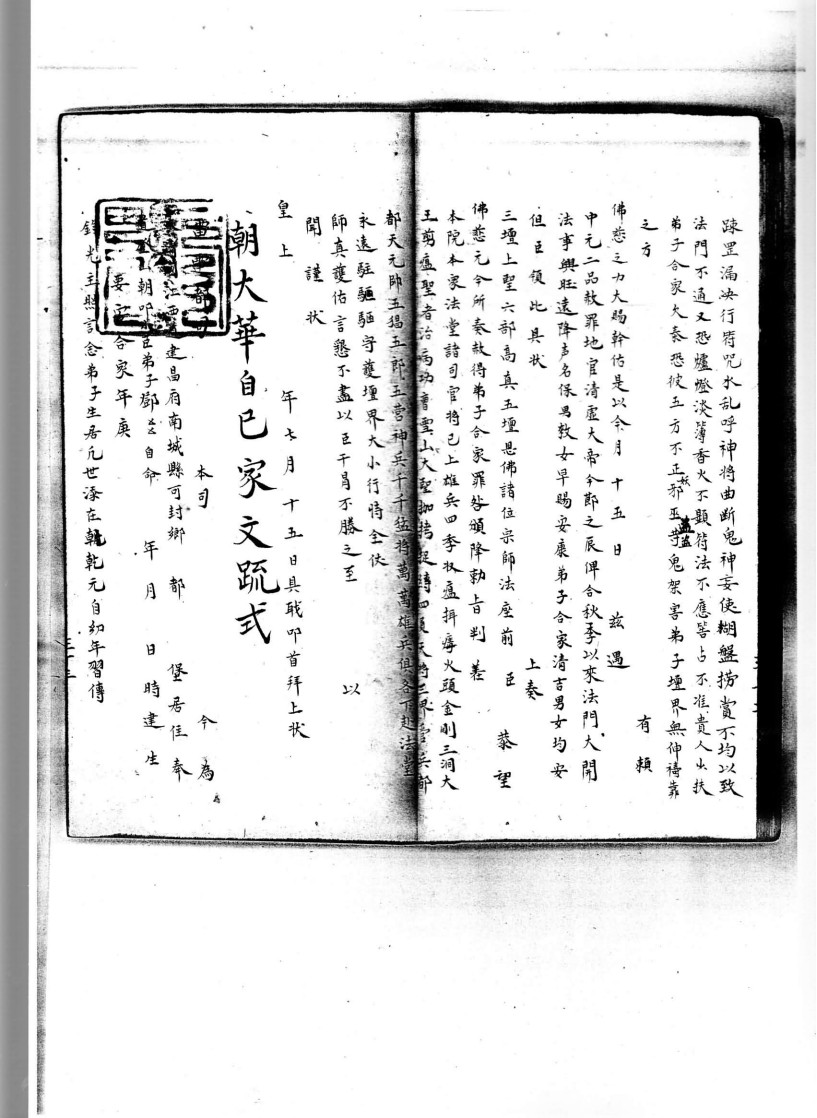 踈罡漏決行符咒水乱呼神将曲断鬼神妄使糊盤撈賞不均以致
法門不通又恐爐燈淡薄香火不顯符法不應筶占不准貴人出扶
弟子合家大秦恐彼五方不正邪妖巫蠱鬼架害弟子壇界無伸禱靠
之方 有賴
佛慈之力大賜幹佑是以今月十五日 兹遇
中元二品赦罪地官清虚大帝令節之辰俾合秋季以來法門大開
法事興旺遠降声名保男教女早賜安康弟子合家清吉男女均安
但臣領比具狀 上奏
三壇上聖六部高真五壇恩佛諸位宗師法座前 臣 恭望
佛慈元令所奏赦得弟子合家罪咎頒降勅旨判差
本院本家法堂諸司官将已上雄兵四季收瘟揖瘴火頭金剛三洞大
王剪瘟聖者治病功曹雪山大聖枷栲捉縛四員天将三界官兵部
都天元帥五猖五郎五营神兵千千猛将萬萬雄兵俱各下赴法堂
永遠駐驅驅守護壇界大小行持全伏
師真護佑言懇不盡以臣干冒不勝之至 以
聞謹狀
皇上 年七月十五日具職叩首拜上狀
朝大華自已家文疏式
本司 今為
江西建昌府南城縣可封鄉 都 堡居住奉
朝叩 臣弟子鄧 自命 年 月 日時建生
合家年庚
主照言念弟子生居凡世添在乾元自幼年習傳
三十三